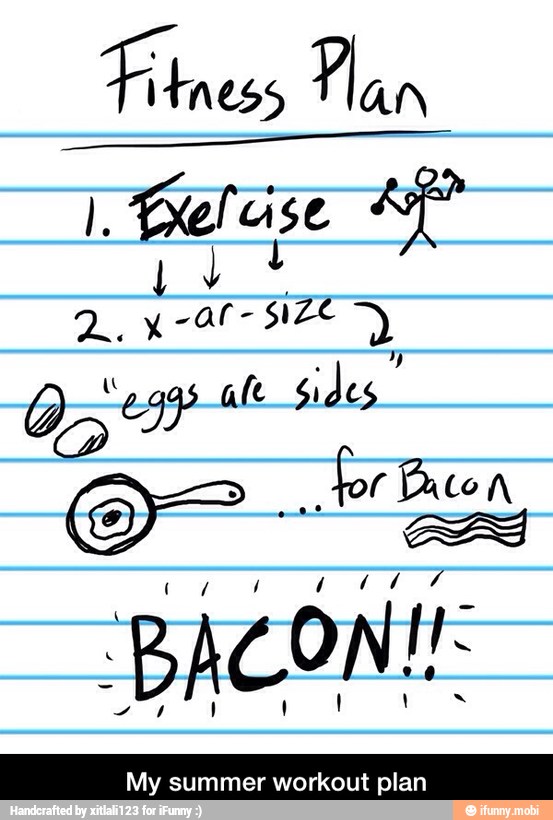 Fitness Plan
1. Exercise
2. x-ar-size
"eggs are sides"
...for Bacon
BACON!!
My summer workout plan
Handcrafted by xitlali123 for iFunny :)
ifunny.mobi